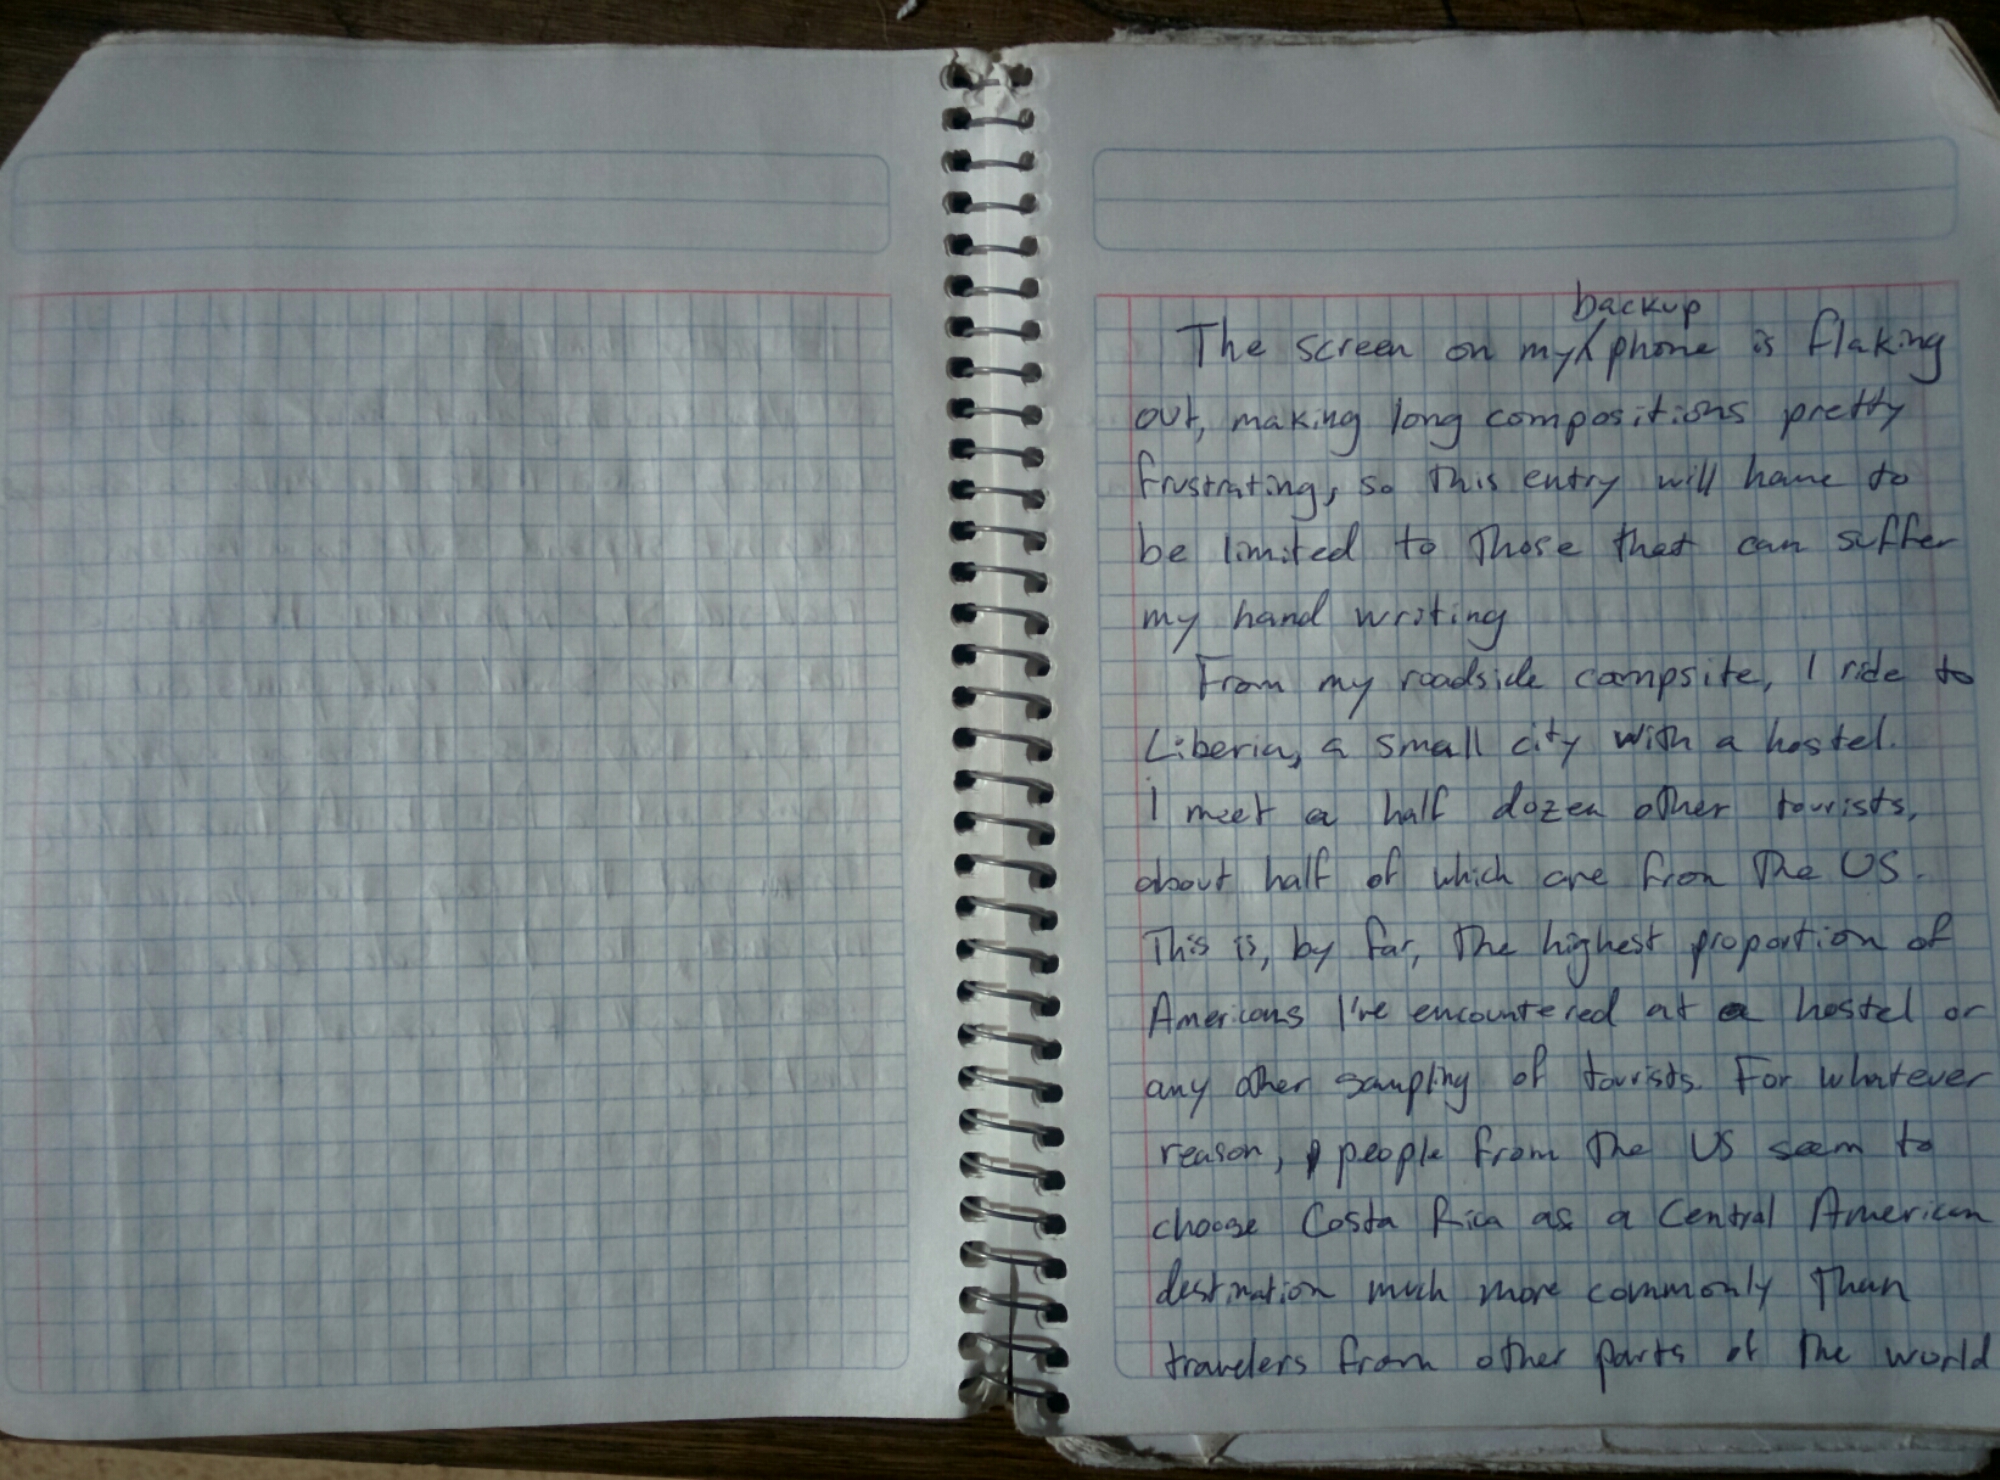 backup
The screen on my phone is flaking
out, making long compositions pretty
frustrating, so this entry will have to
be limited to those that can suffer
my hand writing
From my roadside campsite, I ride to
Liberia, a small city with a hostel.
I meet a half dozen other tourists,
about half of which are from the US.
This is, by far, the highest proportion of
Americans I've encountered at a hostel or
any other sampling of tourists. For whatever
reason, people from the US seem to
choose Costa Rica as a Central American
destination much more commonly than
travelers from other parts of the world